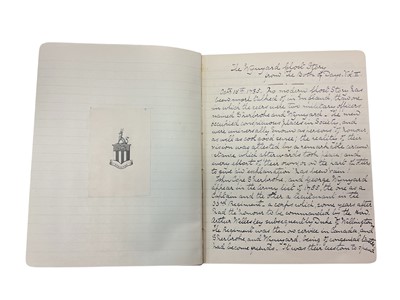 The Wynyard Ghost Story
from the Book of Days Vol II
Octr 15th 1785. No modern Ghost Story has
been more talked of in England, than one
in which the seers were two military officers
named Sherbroke and Wynyard. The men
occupied conspicuous places in Society, and
were universally known as persons of honour
as well as cool good sense; the reality of their
vision was attested by a remarkable circum-
stance which afterwards took place; and
every effort of their own or on the part of others
to give it explanation has been vain
John Cope Sherbroke and George Wynyard
appear in the Army list of 1785, the one as a
Captain and the other a Lieutenant in the
33rd regiment, a corps which some years after
had the honour to be commanded by the Hon
Arthur Wellesley subsequently Duke of Wellington
The regiment was then on service in Canada, and
Sherbroke and Wynyard, being of congenial tastes
had become friends. It was their custom to spend